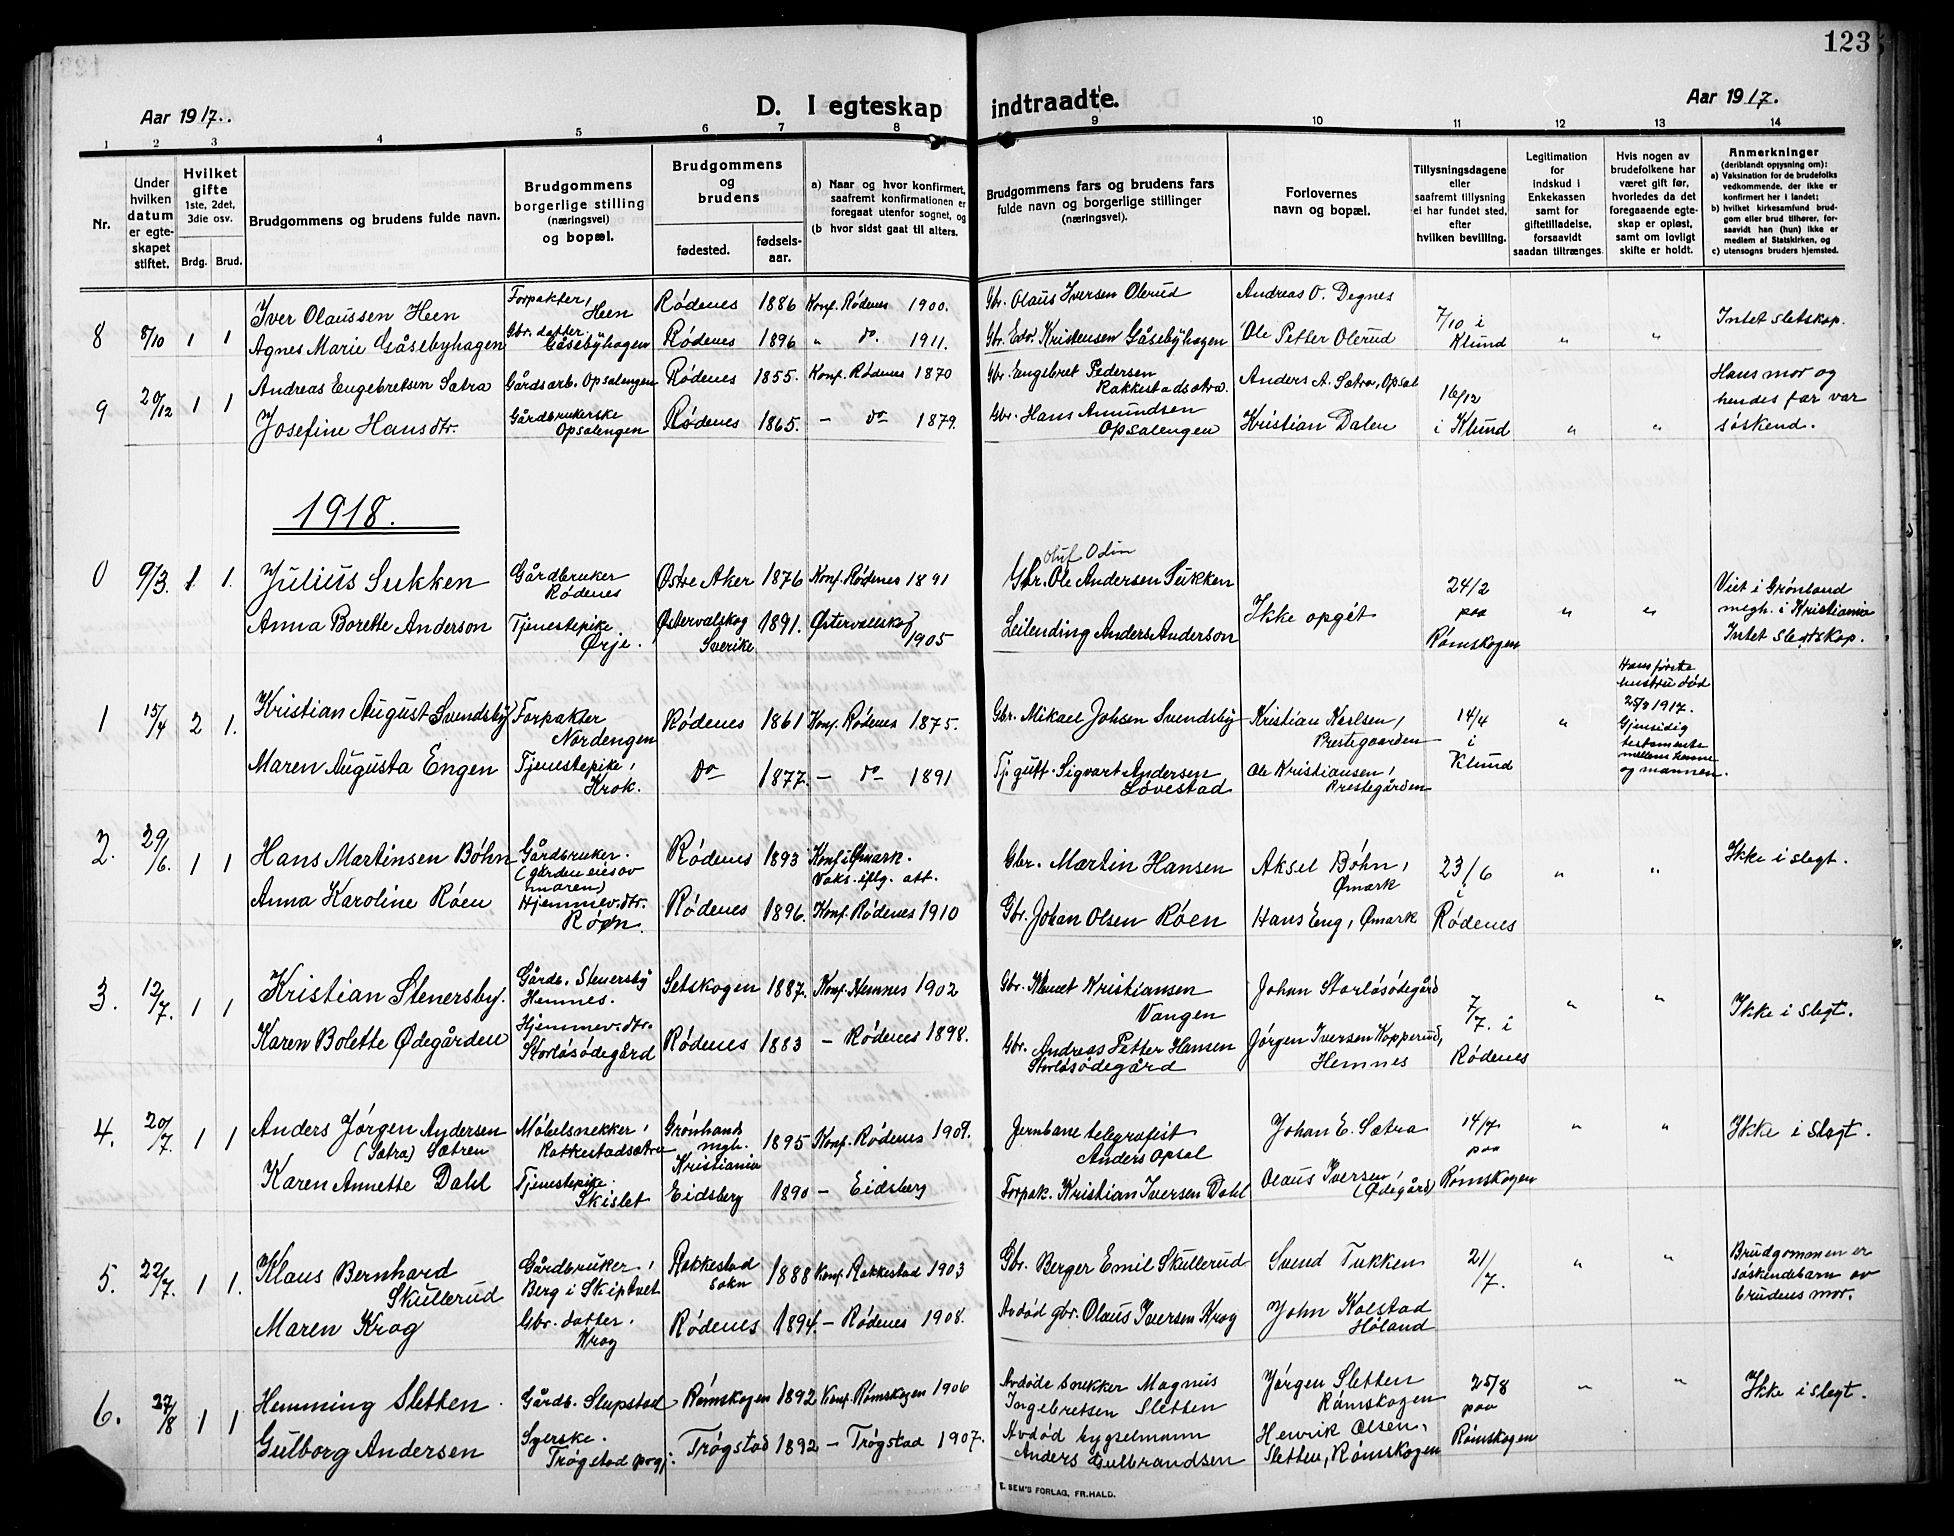 123
Aar 1917.
D. I egteskap indtraadte.
Aar 1917.
1 2 3 4 5 6 7 8 9 10 11 12 13 14
Nr.
Under hvilken datum er egteskapet stiftet.
Hvilket gifte 1ste, 2det, 3die osv.
Brdg. Brud.
Brudgommens og brudens fulde navn.
Brudgommens borgerlige stilling (næringsvei) og bopæl.
Brudgommens og brudens
fødested.
fødsels-aar.
a) Naar og hvor konfirmert, saafremt konfirmationen er foregaat utenfor sognet, og
(b hvor sidst gaat til alters.
Brudgommens fars og brudens fars fulde navn og borgerlige stillinger (næringsvei).
Forlovernes navn og bopæl.
Tillysningsdagene eller saafremt tillysning ei har fundet sted, efter hvilken bevilling.
Legitimation for indskud i Enkekassen samt for giftetilladelse, forsaavidt saadan tiltrænges.
Hvis nogen av brudefolkene har været gift før, hvorledes da det foregaaende egteskap er opløst, samt om lovligt skifte er holdt.
Anmerkninger (deriblandt oplysning om):
a) Vaksination for de brudefolks vedkommende, der ikke er konfirmert her i landet;
b) hvilket kirkesamfund brudgom eller brud tilhører, forsaavidt han (hun) ikke er medlem af Statskirken, og
c) utensogns bruders hjemsted.
8 8/10 1 1 Iver Olaussen Heen Forpakter, Heen Rødenes 1886 Konf. Rødenes 1900. Gbr. Olaus Iversen Olerud Andreas O. Degnes 7/10 i Klund " " Intet sletskap.
Agnes Marie Gåsebyhagen Gbr. datter. Gåsebyhagen Rødenes 1896 " do. 1911. Gbr. Edv. Kristensen Gåsebyhagen Ole Petter Olerud
9 20/12 1 1 Andreas Engebretsen Sætra Gårdsarb. Opsalengen Rødenes 1855. Konf. Rødenes 1870 Gbr. Engebret Pedersen Rakkestadsætra. Anders A. Sætra, Opsal 16/12 i Klund " " Hans mor og hendes far var søskend.
Josefine Hansdtr. Gårdbrukerske Opsalengen Rødenes 1865. - do 1879. Gbr. Hans Amundsen Opsalengen Kristian Dalen
1918.
0 9/3. 1. 1. Julius Sukken Gårdbruker Rødenes Østre Aker 1876 Konf. Rødenes 1891 Oluf Odin Gbr. Ole Andersen Sukken Ikke opgét 24/2 paa Rømskogen " " Viet i Grønland megh. i Kristiania Intet slegtskap.
Anna Borette Anderson Tjenestepike Ørje. Østervalskog Sverike 1891. Østervalskog 1905 Leilending Anders Anderson
1 15/4 2 1. Kristian August Svendsby Forpakter Nordengen Rødenes 1861 Konf. Rødenes 1875. Gbr. Mikael Johsen Svendsby Kristian Karlsen, Prestegaarden 14/4 i Klund " Hans første hustru død 25/9 1917. Gjensidig testamente mellem henne og mannen.
Maren Augusta Engen Tjenestepike, Krok. do 1877. - do 1891 Tj.gutt. Sigvart Andersen Løvestad Ole Kristiansen, Prestegården
2. 29/6. 1 1 Hans Martinsen Bøhn Gårdbruker. (gården eies av moren) Rødenes 1893 Konf. i Ømark. Vaks. iflg. att. Gbr. Martin Hansen Aksel Bøhn, Ømark 23/6 i Rødenes " " Ikke i slegt.
Anna Karoline Røen Hjemmev. dtr. Røen. Rødenes 1896. Konf. Rødenes 1910 Gbr. Johan Olsen Røen Hans Eng, Ømark
3. 12/7. 1 1 Kristian Stenersby. Gårdb. Stenersby Hemnes. Setskogen 1887. Konf. Hemnes 1902 Gbr. Kristiansen Vangen Johan Storløsødegård 7/7. i Rødenes " " Ikke i slegt.
Karen Bolette Ødegården Hjemmev. dtr. Storløsødegård Rødenes 1883 - Rødenes 1898. Gbr. Andreas Petter Hansen Storløsødegård Jørgen Iversen Kopperud, Hemnes
4. 20/7. 1 1 Anders Jørgen Andersen (Sætra) Sætren Møbelsnekker, Rakkestadsætra Grønlands mgh. Kristiania 1895 Konf. Rødenes 1909. Jernbanetelegrafist Anders Opsal Johan E. Sætra 14/7 paa Rømskogen " " Ikke i slegt.
Karen Annette Dahl Tjenestepike. Skislet Eidsberg 1890 - Eidsberg Forpak. Kristian Iversen Dahl Olaus Iversen, (Ødegård)
5. 22/7. 1 1. Klaus Bernhard Skullerud Gårdbruker, Berg i Skiptvet Rakkestad sokn 1888 Konf. Rakkestad 1903 Gbr. Berger Emil Skullerud Svend Tukken 21/7. " " Brudgommen er søskendebarn av brudens mor.
Maren Krog Gbr. datter. Krog Rødenes 1894. - Rødenes 1908. Avdød gbr. Olaus Iversen Krog John Kolstad Høland
6. 27/8 1 1 Hemming Sletten Gårdb. Slupstad Rømskogen 1892 Konf. Rømskogen 1906 Avdøde snekker Magnus Ingebretsen Sletten Jørgen Sletten Rømskogen 25/8 paa Rømskogen " " Ikke i slegt.
Gulborg Andersen Syerske. Trøgstad pgj. Trøgstad 1892 - Trøgstad 1907. Avdød bygselmann Anders Gulbrandsen Henrik Olsen, Sletten, Rømskogen
E. SEM'S FORLAG, FR.HALD.